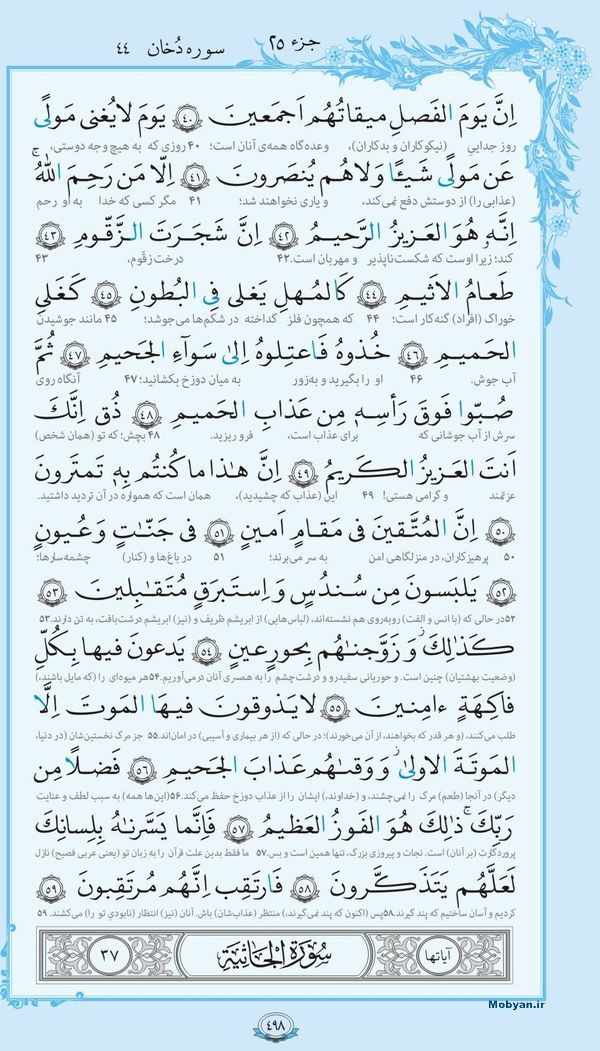 جزء ۲۵
سوره دُخان ۴۴
اِنَّ يَومَ الفَصلِ ميقاتُهُم اَجمَعينَ ﴿۴۰﴾ يَومَ لايُغنى مَولًى
روز جدایی (نیکوکاران و بدکاران)، وعده‌گاه همه‌ی آنان است؛ ۴۰ روزی که به هیچ وجه دوستی،
عَن مَولًى شَيـًٔا وَلاهُم يُنصَرونَ ﴿۴۱﴾ اِلّا مَن رَحِمَ اللهُ ۚ
(عذابی را) از دوستش دفع نمی‌کند، و یاری نخواهند شد؛ ۴۱ مگر کسی که خدا به او رحم
اِنَّهٗ هُوَ العَزيزُ الرَّحيمُ ﴿۴۲﴾ اِنَّ شَجَرَتَ الزَّقّومِ ﴿۴۳﴾
کند؛ زیرا اوست که شکست‌ناپذیر و مهربان است. ۴۲ درخت زقّوم، ۴۳
طَعامُ الاَثيمِ ﴿۴۴﴾ كَالمُهلِ يَغلى فِى البُطونِ ﴿۴۵﴾ كَغَلىِ
خوراک (افراد) گنه‌کار است؛ ۴۴ که همچون فلز گداخته در شکم‌ها می‌جوشد؛ ۴۵ مانند جوشیدن
الحَميمِ ﴿۴۶﴾ خُذوهُ فَاعتِلوهُ اِلىٰ سَوآءِ الجَحيمِ ﴿۴۷﴾ ثُمَّ
آب جوش. ۴۶ او را بگیرید و به‌زور به میان دوزخ بکشانید؛ ۴۷ آنگاه روی
صُبّوا فَوقَ رَأسِهٖ مِن عَذابِ الحَميمِ ﴿۴۸﴾ ذُق اِنَّكَ
سرش از آب جوشانی که برای عذاب است، فرو ریزید. ۴۸ بچش؛ که تو (همان شخص)
اَنتَ العَزيزُ الكَريمُ ﴿۴۹﴾ اِنَّ هٰذا ما كُنتُم بِهٖ تَمتَرونَ
عزتمند و گرامی هستی! ۴۹ این (عذاب که چشیدید)، همان است که همواره در آن تردید داشتید.
﴿۵۰﴾ اِنَّ المُتَّقينَ فى مَقامٍ اَمينٍ ﴿۵۱﴾ فى جَنّٰتٍ وَعُيونٍ
۵۰ پرهیزکاران، در منزلگاهی امن به سر می‌برند؛ ۵۱ در باغ‌ها و (کنار) چشمه‌سارها؛
﴿۵۲﴾ يَلبَسونَ مِن سُندُسٍ وَاِستَبرَقٍ مُتَقٰبِلينَ ﴿۵۳﴾
۵۲ در حالی که (با انس و الفت) روبه‌روی هم نشسته‌اند، (لباس‌هایی) از ابریشم ظریف و (نیز) ابریشم درشت‌بافت، به تن دارند. ۵۳
كَذٰلِكَ وَزَوَّجنٰهُم بِحورٍعينٍ ﴿۵۴﴾ يَدعونَ فيها بِكُلِّ
(وضعیت بهشتیان) چنین است. و حوریانی سفیدرو و درشت‌چشم را به همسری آنان درمی‌آوریم. ۵۴ هر میوه‌ای را (که مایل باشند،)
فاكِهَةٍ ءامِنينَ ﴿۵۵﴾ لايَذوقونَ فيهَا المَوتَ اِلَّا
طلب می‌کنند، (و هر قدر که بخواهند، از آن می‌خورند)؛ در حالی که (از هر بیماری و آسیبی) در امان‌اند. ۵۵ جز مرگ نخستین‌شان (در دنیا،
المَوتَةَ الاولىٰ ۖ وَوَقىٰهُم عَذابَ الجَحيمِ ﴿۵۶﴾ فَضلًا مِن
دیگر) در آنجا (طعم) مرگ را نمی‌چشند، و (خداوند،) ایشان را از عذاب دوزخ حفظ می‌کند. ۵۶ (این‌ها همه) به سبب لطف و عنایت
رَبِّكَ ۚ ذٰلِكَ هُوَ الفَوزُ العَظيمُ ﴿۵۷﴾ فَاِنَّما يَسَّرنٰهُ بِلِسانِكَ
پروردگارت (بر آنان) است. نجات و پیروزی بزرگ، تنها همین است و بس. ۵۷ ما فقط بدین علت قرآن را به زبان تو (یعنی عربی فصیح) نازل
لَعَلَّهُم يَتَذَكَّرونَ ﴿۵۸﴾ فَارتَقِب اِنَّهُم مُرتَقِبونَ ﴿۵۹﴾
کردیم و آسان ساختیم که پند گیرند. ۵۸ پس (اکنون که پند نمی‌گیرند،) منتظر (عذاب‌شان) باش. آنان (نیز) انتظار (نابودیِ تو را) می‌کشند. ۵۹
آیاتها
سُورَةُ الجَاثِيَةِ
۳۷
۴۹۸
Mobyan.ir